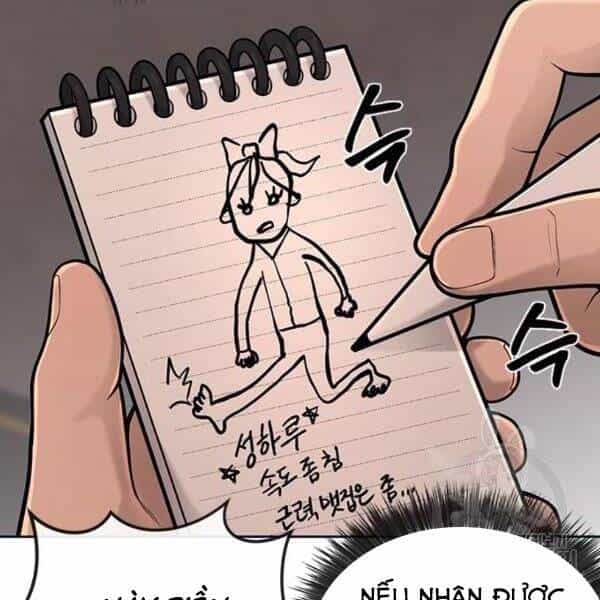 스
윽
스
윽
성하루
속도 좀 침
근력 맷집은 좀...
NẾU NHẬN ĐƯỢC